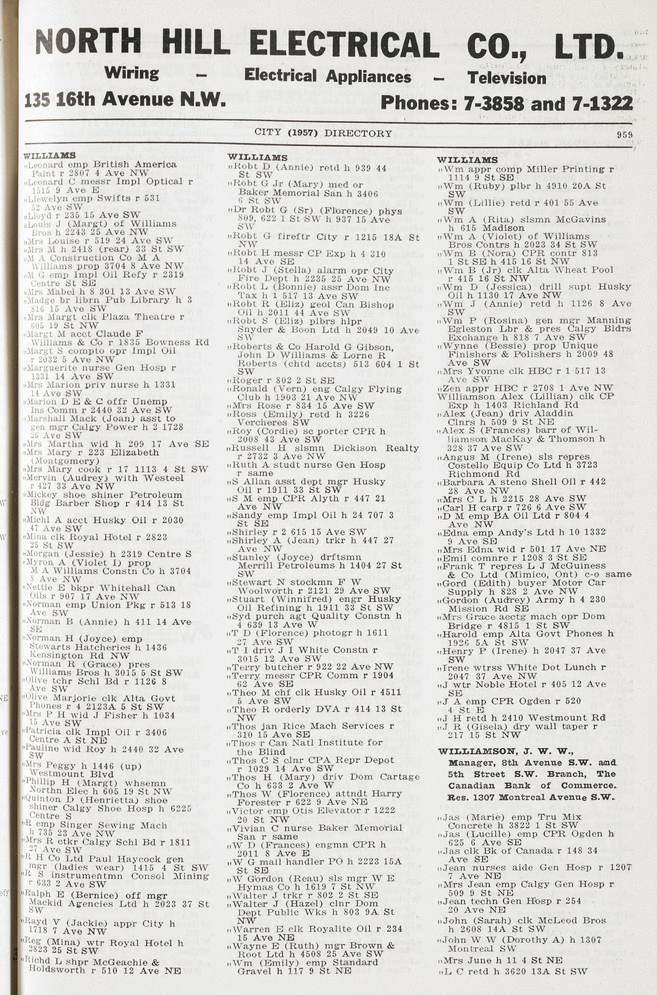 NORTH HILL ELECTRICAL CO., LTD.
Wiring — Electrical Appliances — Television
135 16th Avenue N.W. Phones: 7-3858 and 7-1322
CITY (1957) DIRECTORY 959
WILLIAMS
„Leonard emp British America
Paint r 2807 4 Ave NW
„Leonard C messr Impl Optical r
1515 9 Ave E
„Llewelyn emp Swifts r 531
52 Ave SW
„Lloyd r 235 15 Ave SW
„Louis J (Margt) of Williams
Bros h 2243 25 Ave NW
„Mrs Louise r 519 24 Ave SW
„Mrs M h 2418 (rear) 33 St SW
„M A Construction Co M A
Williams prop 3704 8 Ave NW
„M G emp Impl Oil Refy r 2319
Centre St SE
„Mrs Mabel h 8 301 13 Ave SW
„Madge br librn Pub Library h 3
816 15 Ave SW
„Mrs Margt clk Plaza Theatre r
605 19 St NW
„Margt M acct Claude F
Williams & Co r 1835 Bowness Rd
„Margt S compto opr Impl Oil
r 2032 5 Ave NW
„Marguerite nurse Gen Hosp r
1331 14 Ave SW
„Mrs Marion priv nurse h 1331
14 Ave SW
„Marion D E & C offr Unemp
Ins Comm r 2440 32 Ave SW
„Marshall Mack (Joan) asst to
gen mgr Calgy Power h 2 1728
26 Ave SW
„Mrs Martha wid h 209 17 Ave SE
„Mrs Mary r 223 Elizabeth
(Montgomery)
„Mrs Mary cook r 17 1113 4 St SW
„Mervin (Audrey) with Westeel
r 427 33 Ave NW
„Mickey shoe shiner Petroleum
Bldg Barber Shop r 414 13 St
NW
„Michl A acct Husky Oil r 2030
47 Ave SW
„Mina clk Royal Hotel r 2823
25 St SW
„Morgan (Jessie) h 2319 Centre S
„Myron A (Violet I) prop
M A Williams Constn Co h 3704
8 Ave NW
„Nettie E bkpr Whitehall Can
Oils r 907 17 Ave NW
„Norman emp Union Pkg r 513 18
Ave SW
„Norman B (Annie) h 411 14 Ave
SE
„Norman H (Joyce) emp
Stewarts Hatcheries h 1436
Kensington Rd NW
„Norman R (Grace) pres
Williams Bros h 3015 5 St SW
„Olive tchr Schl Bd r 1126 8
Ave SW
„Olive Marjorie clk Alta Govt
Phones r 4 2123A 5 St SW
„Mrs P H wid J Fisher h 1034
15 Ave SW
„Patricia clk Impl Oil r 3406
Centre A St NE
„Pauline wid Roy h 2440 32 Ave
SW
„Mrs Peggy h 1446 (up)
Westmount Blvd
„Phillip H (Margt) whsemn
Northn Elec h 605 19 St NW
„Quinton D (Henrietta) shoe
shiner Calgy Shoe Hosp h 6225
Centre S
„R emp Singer Sewing Mach
h 735 23 Ave NW
„Mrs R ctkr Calgy Schl Bd r 1811
27 Ave SW
„R H Co Ltd Paul Haycock gen
mgr (ladies wear) 1415 4 St SW
„R S instrumentmn Consol Mining
r 633 2 Ave SW
„Ralph E (Bernice) off mgr
Mackid Agencies Ltd h 2023 37 St
SW
„Rayd V (Jackie) appr City h
1718 7 Ave NW
„Reg (Mina) wtr Royal Hotel h
2823 25 St SW
„Richd L shpr McGeachie &
Holdsworth r 510 12 Ave NE
WILLIAMS
„Robt D (Annie) retd h 939 44
St SW
„Robt G Jr (Mary) med or
Baker Memorial San h 3406
6 St SW
„Dr Robt G (Sr) (Florence) phys
809, 622 1 St SW h 937 15 Ave
SW
„Robt G fireftr City r 1215 18A St
NW
„Robt H messr CP Exp h 4 310
14 Ave SE
„Robt J (Stella) alarm opr City
Fire Dept h 2235 25 Ave NW
„Robt L (Bonnie) assr Dom Inc
Tax h 1 517 13 Ave SW
„Robt R (Eliz) geol Can Bishop
Oil h 2011 44 Ave SW
„Robt S (Eliz) plbrs hlpr
Snyder & Boon Ltd h 2049 10 Ave
SW
„Roberts & Co Harold G Gibson,
John D Williams & Lorne R
Roberts (chtd accts) 513 604 1 St
SW
„Roger r 802 2 St SE
„Ronald (Vern) eng Calgy Flying
Club h 1903 21 Ave NW
„Mrs Rose r 834 15 Ave SW
„Ross (Emily) retd h 3226
Vercheres SW
„Roy (Cordie) sc porter CPR h
2008 43 Ave SW
„Russell H slsmn Dickison Realty
r 2732 3 Ave NW
„Ruth A studt nurse Gen Hosp
r same
„S Allan asst dept mgr Husky
Oil r 1911 33 St SW
„S M emp CPR Alyth r 447 21
Ave NW
„Sandy emp Impl Oil h 24 707 3
St SE
„Shirley r 2 615 15 Ave SW
„Shirley A (Jean) trkr h 447 27
Ave NW
„Stanley (Joyce) drftsmn
Merrill Petroleums h 1404 27 St
SW
„Stewart N stockmn F W
Woolworth r 2121 29 Ave SW
„Stuart (Winnifred) engr Husky
Oil Refining h 1911 33 St SW
„Syd purch agt Quality Constn h
4 639 13 Ave W
„T D (Florence) photogr h 1611
27 Ave SW
„T I driv J I White Constn r
3015 12 Ave SW
„Terry butcher r 922 22 Ave NW
„Terry messr CPR Comm r 1904
62 Ave SE
„Theo M chf clk Husky Oil r 4511
5 Ave SW
„Theo R orderly DVA r 414 13 St
NW
„Thos jan Rice Mach Services r
310 15 Ave SE
„Thos r Can Natl Institute for
the Blind
„Thos C S clnr CPA Repr Depot
r 1029 14 Ave SW
„Thos H (Mary) driv Dom Cartage
Co h 633 2 Ave W
„Thos W (Florence) attndt Harry
Forester r 622 9 Ave NE
„Victor emp Otis Elevator r 1222
20 St NW
„Vivian C nurse Baker Memorial
San r same
„W D (Frances) engmn CPR h
2011 8 Ave E
„W G mail handler PO h 2223 15A
St SE
„W Gordon (Reau) sls mgr W E
Hymas Co h 1619 7 St NW
„Walter J trkr r 802 2 St SE
„Walter J (Hazel) clnr Dom
Dept Public Wks h 803 9A St
NW
„Warren E clk Royalite Oil r 234
15 Ave NE
„Wayne E (Ruth) mgr Brown &
Root Ltd h 4508 25 Ave SW
„Wm (Emily) emp Standard
Gravel h 117 9 St NE
WILLIAMS
„Wm appr comp Miller Printing r
1114 9 St SE
„Wm (Ruby) plbr h 4910 20A St
SW
„Wm (Lillie) retd r 401 55 Ave
SW
„Wm A (Rita) slsmn McGavins
h 615 Madison
„Wm A (Violet) of Williams
Bros Contrs h 2023 34 St SW
„Wm B (Nora) CPR contr 813
1 St SE h 415 16 St NW
„Wm B (Jr) clk Alta Wheat Pool
r 415 16 St NW
„Wm D (Jessica) drill supt Husky
Oil h 1130 17 Ave NW
„Wm J (Annie) retd h 1126 8 Ave
SW
„Wm P (Rosina) gen mgr Manning
Egleston Lbr & pres Calgy Bldrs
Exchange h 818 7 Ave SW
„Wynne (Bessie) prop Unique
Finishers & Polishers h 2009 48
Ave SW
„Mrs Yvonne clk HBC r 1 517 13
Ave SW
„Zen appr HBC r 2708 1 Ave NW
Williamson Alex (Lillian) clk CP
Exp h 1403 Richland Rd
„Alex (Jean) driv Aladdin
Clnrs h 509 9 St NE
„Alex S (Frances) barr of Wil-
liamson MacKay & Thomson h
328 37 Ave SW
„Angus M (Irene) sls repres
Costello Equip Co Ltd h 3723
Richmond Rd
„Barbara A steno Shell Oil r 442
28 Ave NW
„Mrs C L h 2215 28 Ave SW
„Carl H carp r 726 6 Ave SW
„D M emp BA Oil Ltd r 804 4
Ave NW
„Edna emp Andy's Ltd h 10 1332
9 Ave SE
„Mrs Edna wid r 501 17 Ave NE
„Emil comnre r 1208 3 St SE
„Frank T repres L J McGuiness
& Co Ltd (Mimico, Ont) c-o same
„Gord (Edith) buyer Motor Car
Supply h 828 2 Ave NW
„Gordon (Audrey) Army h 4 230
Mission Rd SE
„Mrs Grace acctg mach opr Dom
Bridge r 4815 1 St SW
„Harold emp Alta Govt Phones h
1926 5A St SW
„Henry P (Irene) h 2047 37 Ave
SW
„Irene wtrss White Dot Lunch r
2047 37 Ave NW
„J wtr Noble Hotel r 405 12 Ave
SE
„J A emp CPR Ogden r 520
4 St E
„J H retd h 2410 Westmount Rd
„J R (Gisela) dry wall taper r
217 15 St NW
WILLIAMSON, J. W. W.,
Manager, 8th Avenue S.W. and
5th Street S.W. Branch, The
Canadian Bank of Commerce.
Res. 1307 Montreal Avenue S.W.
„Jas (Marie) emp Tru Mix
Concrete h 3822 1 St SW
„Jas (Lucille) emp CPR Ogden h
625 6 Ave SE
„Jas clk Bk of Canada r 148 34
Ave SE
„Jean nurses aide Gen Hosp r 1207
7 Ave NE
„Mrs Jean emp Calgy Gen Hosp r
509 9 St NE
„Jean techn Gen Hosp r 254
20 Ave NE
„John (Sarah) clk McLeod Bros
h 2608 14A St SW
„John W W (Dorothy A) h 1307
Montreal SW
„Mrs June h 11 4 St NE
„L C retd h 3620 13A St SW